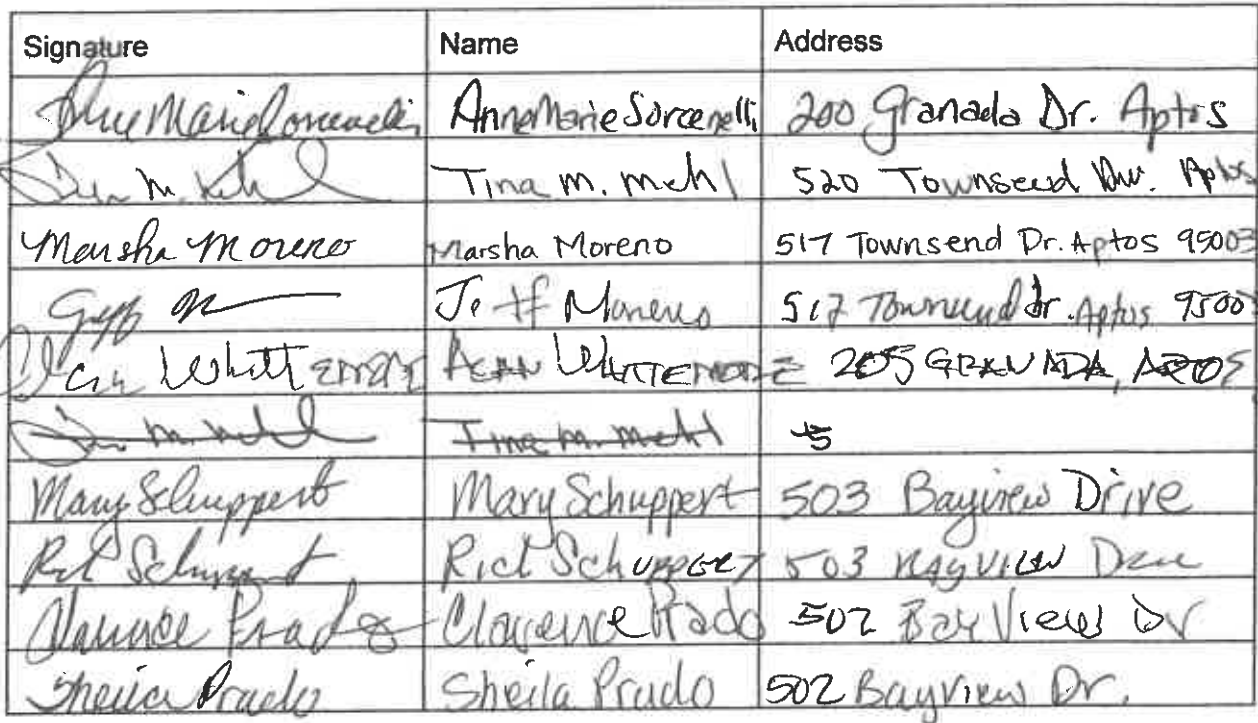 Signature Name Address
AnneMarie Sorcenelli 200 Granada Dr. Aptos
Tina M. Mehl 520 Townsend Aptos
Marsha Moreno Marsha Moreno 517 Townsend Dr. Aptos 95003
Jeff Moreno 517 Townsend Dr. Aptos 9500
Whittemore 205 GRANADA, APTOS
Tina M. Mehl
Mary Schuppert Mary Schuppert 503 Bayview Drive
Rick Schuppert Rick Schuppert 503 Bayview
Clarence Prado Clarence Prado 502 Bay View Dr
Sheila Prado Sheila Prado 502 Bayview Dr.